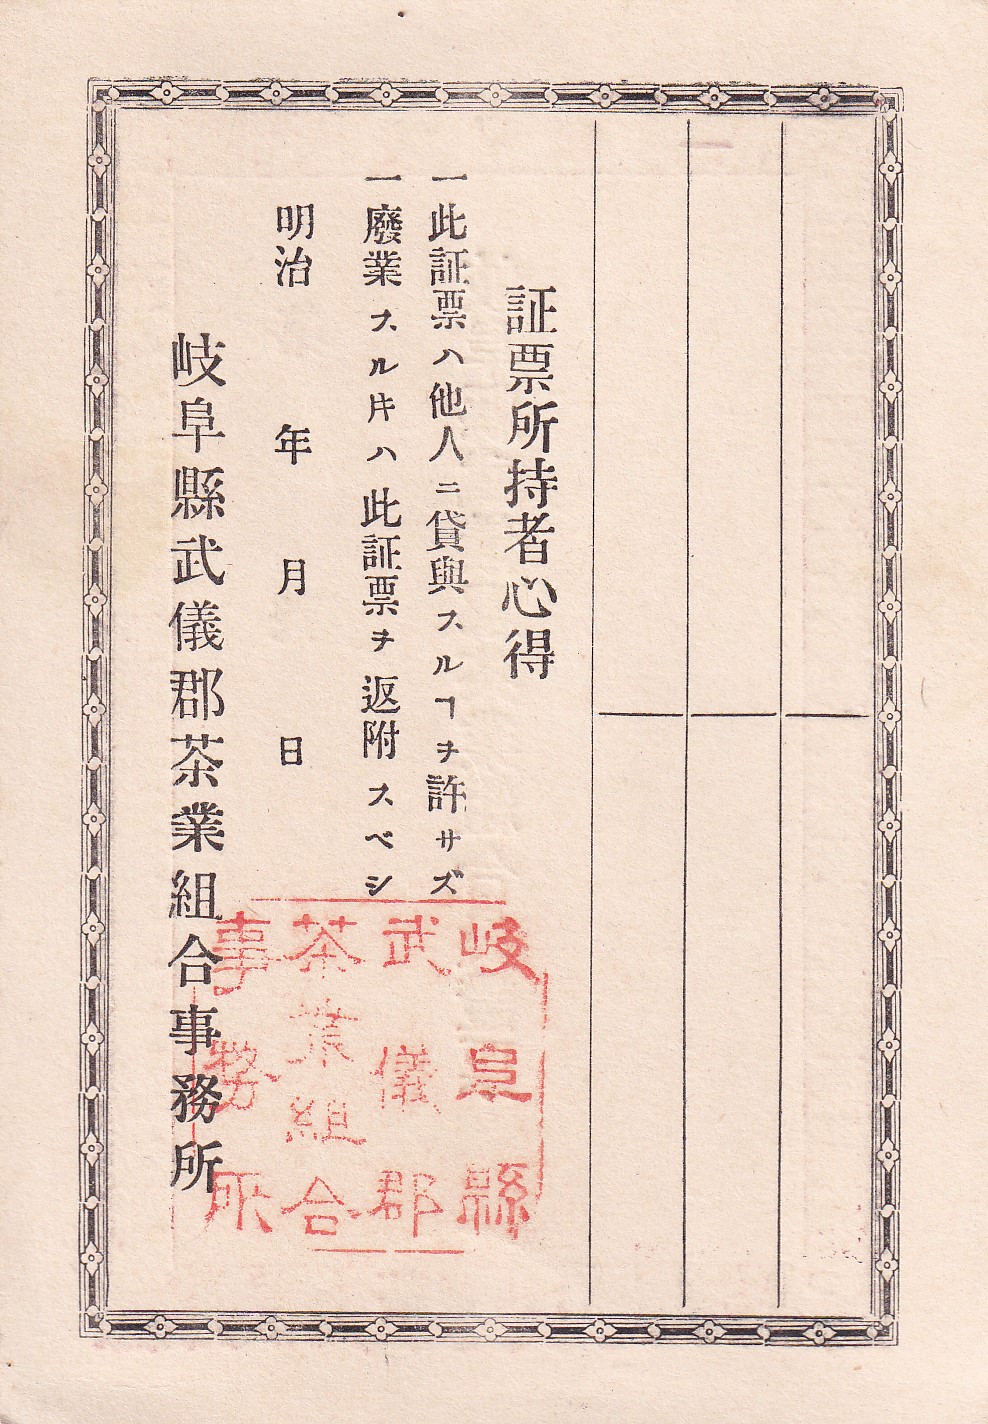 証票所持者心得
一此証票ハ他人ニ貸與スルヿヲ許サズ
一廢業スル𪜈ハ此証票ヲ返附スベシ
明治 年 月 日
岐阜縣武儀郡茶業組合事務所
岐阜縣
武儀郡
茶業組合
事務所